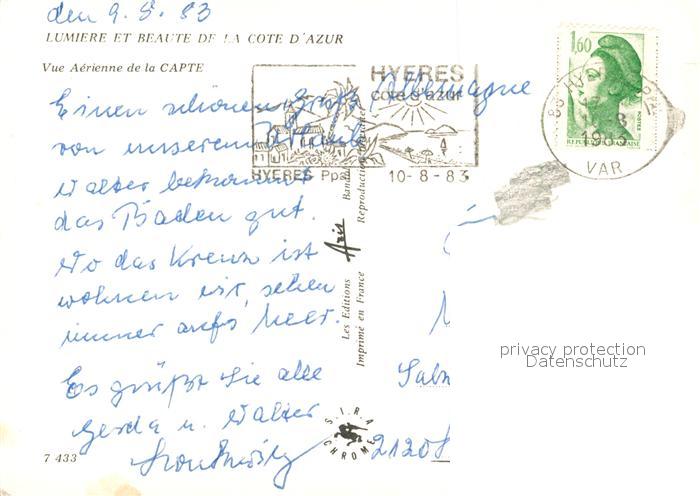 den 9. 8. 83
LUMIERE ET BEAUTE DE LA COTE D'AZUR
Vue Aérienne de la CAPTE
Einen schönen Gruß
von unserem Urlaub
Walter bekommt
das Baden gut.
Wo das Kreuz ist
wohnen wir, sehen
immer aufs Meer.
Es grüßt Sie alle
Gerda u. Walter
7 433
HYERES
cote d'azur
HYERES Ppal
10-8-83
Allemagne
1,60
POSTES
REPUBLIQUE FRANÇAISE
83 HY
8
VAR
Les Editions Aris
Imprimé en France
Reproduction
S.I.R.A.
CHROME
privacy protection
Datenschutz